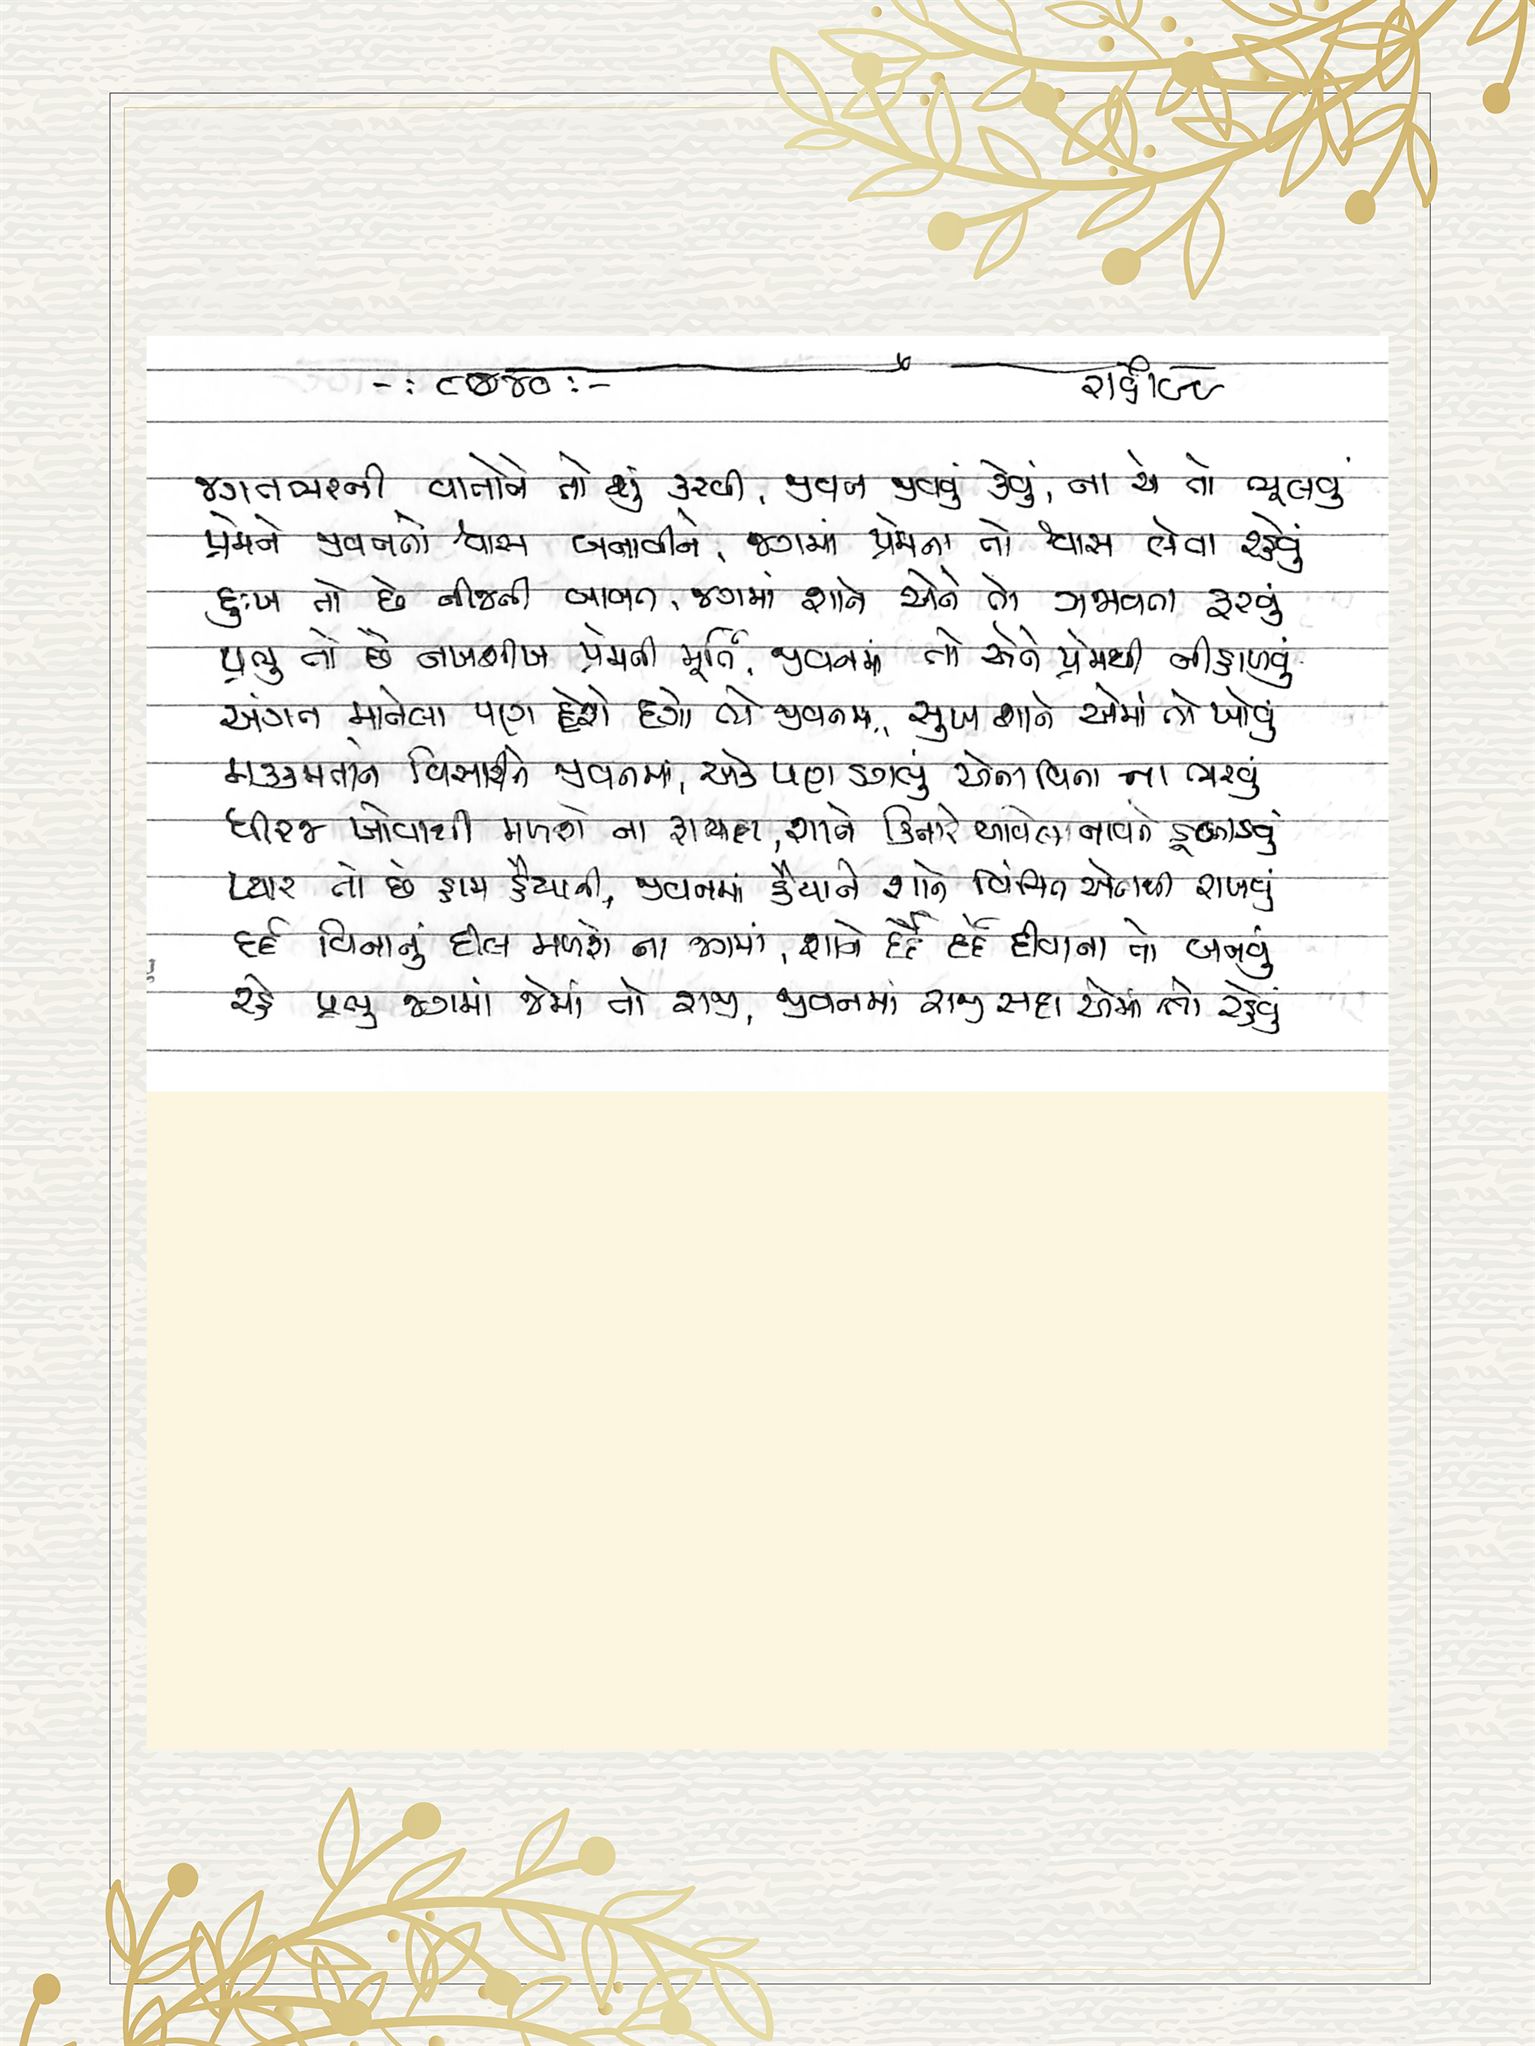 -: ૮૭૪૦ :-
જગતભરની વાતોને તો શું કરવી, જીવન જીવવું કેવું, ના એ તો ભૂલવું
પ્રેમને જીવનનો શ્વાસ બનાવીને, જગમાં પ્રેમના તો શ્વાસ લેવા રહેવું
દુઃખ તો છે નીજની બાબત, જગમાં શાને એને તો ગજવતા ફરવું
પ્રભુ તો છે નખશીખ પ્રેમની મૂર્તિ, જીવનમાં તો એને પ્રેમથી નીહાળવું
અંગત માનેલા પણ દેશે દગો જીવનમાં, સુખ શાને એમાં તો ખોવું
મક્કમતાને વિસારીને જીવનમાં, એક પણ ડગલું એના વિના ના ભરવું
ધીરજ ખોવાથી મળશે ના ફાયદા, શાને કિનારે આવેલા નાવને ડૂબાડવું
પ્યાર તો છે કામ હૈયાની, જીવનમાં હૈયાને શાને વંચિત એનાથી રાખવું
દર્દ વિનાનું દીલ મળશે ના જગમાં, શાને દર્દે દર્દે દીવાના તો બનવું
રહે પ્રભુ જગમાં જેમાં તો રાજી, જીવનમાં રાજી સદા એમાં તો રહેવું